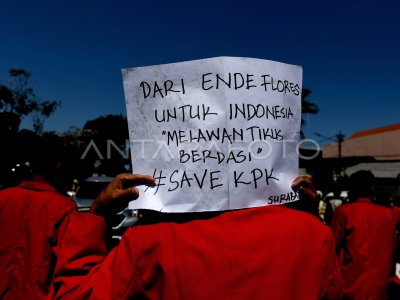 DARI ENDE FLORES
UNTUK INDONESIA
"MELAWAN TIKUS
BERDASI"
#SAVE KPK
ANTARAFOTO